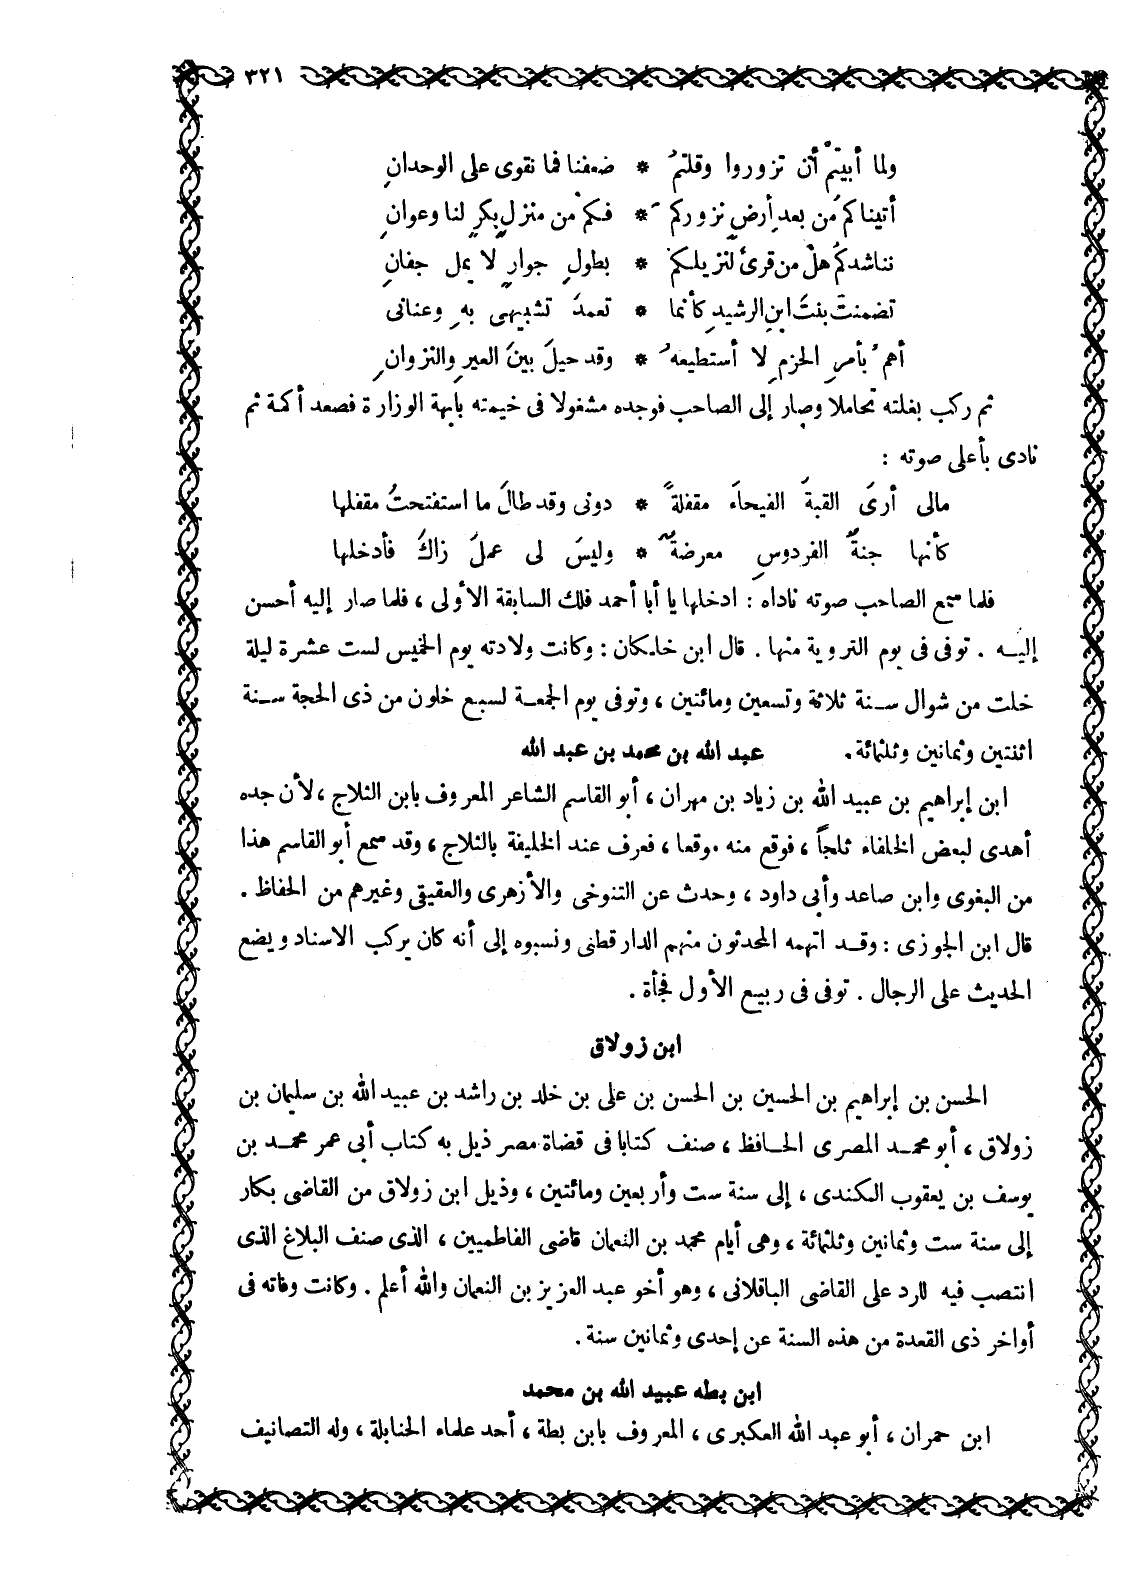 ٣٢١
ولما أبيتمْ أن تزوروا وقلتمُ * ضعفنا فما نقوى على الوحدانِ
أتيناكمُ من بعد أرضٍ نزوركم * فكمْ من منزلٍ بكرٍ لنا وعوانِ
نناشدكمُ هلْ من قرئ لنزيلكم * بطولِ جوارٍ لا يمل جفانِ
تضمنتَ بنتَ ابنِ الرشيدِ كأنما * تعمدَ تشبيهى بهِ وعنانى
أهمُ بأمرِ الحزمِ لا أستطيعهُ * وقد حيلَ بينَ العيرِ والنزوانِ
ثم ركب بغلته تحاملا وصار إلى الصاحب فوجده مشغولا فى خيمته بأبهة الوزارة فصعد أكمة ثم
نادى بأعلى صوته :
مالى أرىَ القبةَ الفيحاءَ مقفلةً * دونى وقد طالَ ما استفتحتُ مقفلها
كأنها جنةُ الفردوسِ معرضةً * وليسَ لى عملَ زاكَ فأدخلها
فلما سمع الصاحب صوته ناداه : ادخلها يا أبا أحمد فلك السابقة الأولى ، فلما صار إليه أحسن
إليـه . توفى فى يوم التروية منها . قال ابن خلكان : وكانت ولادته يوم الخميس لست عشرة ليلة
خلت من شوال سـنة ثلاثة وتسعين ومائتين ، وتوفى يوم الجمعـة لسبع خلون من ذى الحجة سـنة
اثنتين وثمانين وثلثمائة . عبد الله بن محمد بن عبد الله
ابن إبراهيم بن عبيد الله بن زياد بن مهران ، أبو القاسم الشاعر المعروف بابن الثلاج ، لأن جده
أهدى لبعض الخلفاء ثلجاً ، فوقع منه موقعا ، فعرف عند الخليفة بالثلاج ، وقد سمع أبو القاسم هذا
من البغوى وابن صاعد وأبى داود ، وحدث عن التنوخى والأزهرى والعقيقى وغيرهم من الحفاظ .
قال ابن الجوزى : وقـد اتهمه المحدثون منهم الدارقطنى ونسبوه إلى أنه كان يركب الاسناد ويضع
الحديث على الرجال . توفى فى ربيع الأول فجأة .
ابن زولاق
الحسن بن إبراهيم بن الحسين بن الحسن بن على بن خلد بن راشد بن عبيد الله بن سليمان بن
زولاق ، أبو محمـد المصرى الحـافظ ، صنف كتابا فى قضاة مصر ذيل به كتاب أبى عمر محمـد بن
يوسف بن يعقوب الكندى ، إلى سنة ست وأربعين ومائتين ، وذيل ابن زولاق من القاضى بكار
إلى سنة ست وثمانين وثلثمائة ، وهى أيام محمد بن النعمان قاضى الفاطميين ، الذى صنف البلاغ الذى
انتصب فيه للرد على القاضى الباقلانى ، وهو أخو عبد العزيز بن النعمان والله أعلم . وكانت وفاته فى
أواخر ذى القعدة من هذه السنة عن إحدى وثمانين سنة .
ابن بطه عبيد الله بن محمد
ابن حمران ، أبو عبد الله العكبرى ، المعروف بابن بطة ، أحد علماء الحنابلة ، وله التصانيف